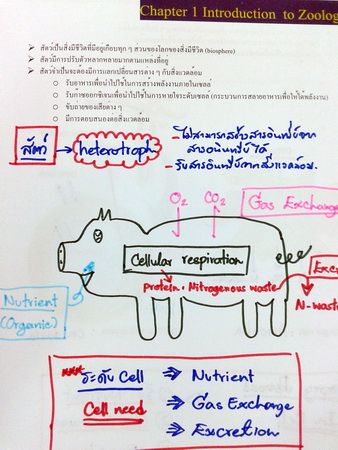 Chapter 1 Introduction to Zoolog
➢ สัตว์เป็นสิ่งมีชีวิตที่มีอยู่เกือบทุก ๆ ส่วนของโลกของสิ่งมีชีวิต (biosphere)
➢ สัตว์มีการปรับตัวหลากหลายมากตามแหล่งที่อยู่
➢ สัตว์จำเป็นจะต้องมีการแลกเปลี่ยนสารต่าง ๆ กับสิ่งแวดล้อม
o รับอาหารเพื่อนำไปใช้ในการสร้างพลังงานภายในเซลล์
o รับก๊าซออกซิเจนเพื่อนำไปใช้ในการหายใจระดับเซลล์ (กระบวนการสลายอาหารเพื่อให้ได้พลังงาน)
o ขับถ่ายของเสียต่าง ๆ
o มีการตอบสนองต่อสิ่งแวดล้อม
สัตว์ → heterotroph
- ไม่สามารถสร้างสารอินทรีย์จาก
สารอนินทรีย์ได้
- รับสารอินทรีย์จากสิ่งแวดล้อม.
O2 CO2
Gas Exchange
Cellular respiration
Excre
Protein • Nitrogenous waste
N-waste
Nutrient
(Organic)
*** ระดับ Cell ⇒ Nutrient
Cell need ⇒ Gas Exchange
⇒ Excretion